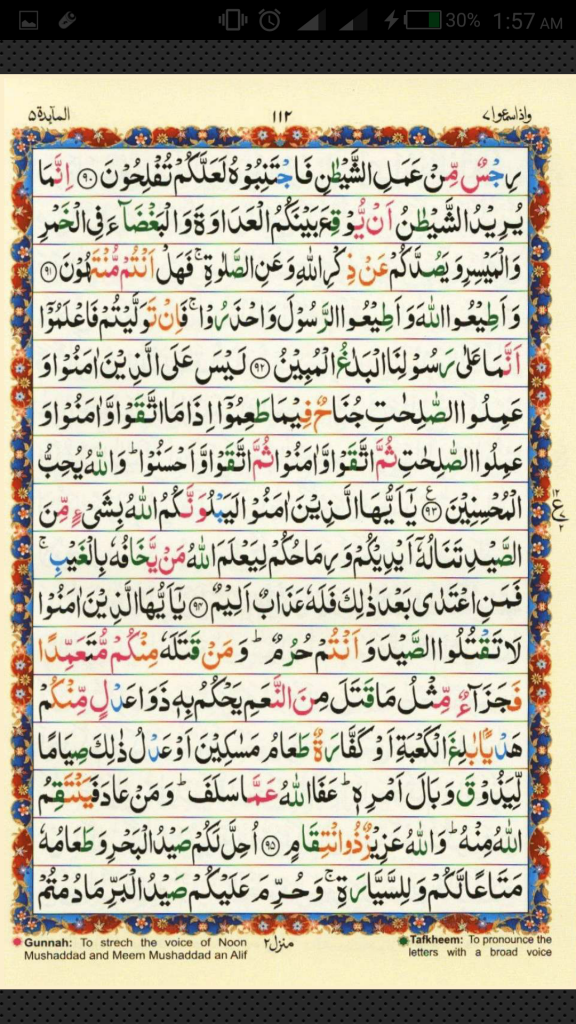 30% 1:57 AM
واذاسمعوا٧ ١١٢ المآىدة٥
رِجۡسٌ مِّنۡ عَمَلِ الشَّيۡطٰنِ فَاجۡتَنِبُوۡهُ لَعَلَّكُمۡ تُفۡلِحُوۡنَ ﴿۹۰﴾ اِنَّمَا
يُرِيۡدُ الشَّيۡطٰنُ اَنۡ يُّوۡقِعَ بَيۡنَكُمُ الۡعَدَاوَةَ وَالۡبَغۡضَآءَ فِى الۡخَمۡرِ
وَالۡمَيۡسِرِ وَيَصُدَّكُمۡ عَنۡ ذِكۡرِ اللّٰهِ وَعَنِ الصَّلٰوةِ ۚ فَهَلۡ اَنۡتُمۡ مُّنۡتَهُوۡنَ ﴿۹۱﴾
وَاَطِيۡعُوا اللّٰهَ وَاَطِيۡعُوا الرَّسُوۡلَ وَاحۡذَرُوۡا ۚ فَاِنۡ تَوَلَّيۡتُمۡ فَاعۡلَمُوۡۤا
اَنَّمَا عَلٰى رَسُوۡلِنَا الۡبَلٰغُ الۡمُبِيۡنُ ﴿۹۲﴾ لَيۡسَ عَلَى الَّذِيۡنَ اٰمَنُوۡا وَ
عَمِلُوا الصّٰلِحٰتِ جُنَاحٌ فِيۡمَا طَعِمُوۡۤا اِذَا مَا اتَّقَوْا وَّاٰمَنُوۡا وَ
عَمِلُوا الصّٰلِحٰتِ ثُمَّ اتَّقَوْا وَّاٰمَنُوۡا ثُمَّ اتَّقَوْا وَّاَحۡسَنُوۡا ؕ وَاللّٰهُ يُحِبُّ
الۡمُحۡسِنِيۡنَ ﴿۹۳﴾ يٰۤاَيُّهَا الَّذِيۡنَ اٰمَنُوۡا لَيَبۡلُوَنَّكُمُ اللّٰهُ بِشَىۡءٍ مِّنَ
الصَّيۡدِ تَنَالُهٗۤ اَيۡدِيۡكُمۡ وَرِمَاحُكُمۡ لِيَعۡلَمَ اللّٰهُ مَنۡ يَّخَافُهٗ بِالۡغَيۡبِ ۚ
فَمَنِ اعۡتَدٰى بَعۡدَ ذٰلِكَ فَلَهٗ عَذَابٌ اَلِيۡمٌ ﴿۹۴﴾ يٰۤاَيُّهَا الَّذِيۡنَ اٰمَنُوۡا
لَا تَقۡتُلُوا الصَّيۡدَ وَاَنۡتُمۡ حُرُمٌ ؕ وَمَنۡ قَتَلَهٗ مِنۡكُمۡ مُّتَعَمِّدًا
فَجَزَآءٌ مِّثۡلُ مَا قَتَلَ مِنَ النَّعَمِ يَحۡكُمُ بِهٖ ذَوَا عَدۡلٍ مِّنۡكُمۡ
هَدۡيًۢا بٰلِغَ الۡكَعۡبَةِ اَوۡ كَفَّارَةٌ طَعَامُ مَسٰكِيۡنَ اَوۡ عَدۡلُ ذٰلِكَ صِيَامًا
لِّيَذُوۡقَ وَبَالَ اَمۡرِهٖ ؕ عَفَا اللّٰهُ عَمَّا سَلَفَ ؕ وَمَنۡ عَادَ فَيَنۡتَقِمُ
اللّٰهُ مِنۡهُ ؕ وَاللّٰهُ عَزِيۡزٌ ذُو انۡتِقَامٍ ﴿۹۵﴾ اُحِلَّ لَكُمۡ صَيۡدُ الۡبَحۡرِ وَطَعَامُهٗ
مَتَاعًا لَّكُمۡ وَلِلسَّيَّارَةِ ۚ وَحُرِّمَ عَلَيۡكُمۡ صَيۡدُ الۡبَرِّ مَا دُمۡتُمۡ
Gunnah: To strech the voice of Noon
Mushaddad and Meem Mushaddad an Alif
منزل٢
Tafkheem: To pronounce the
letters with a broad voice